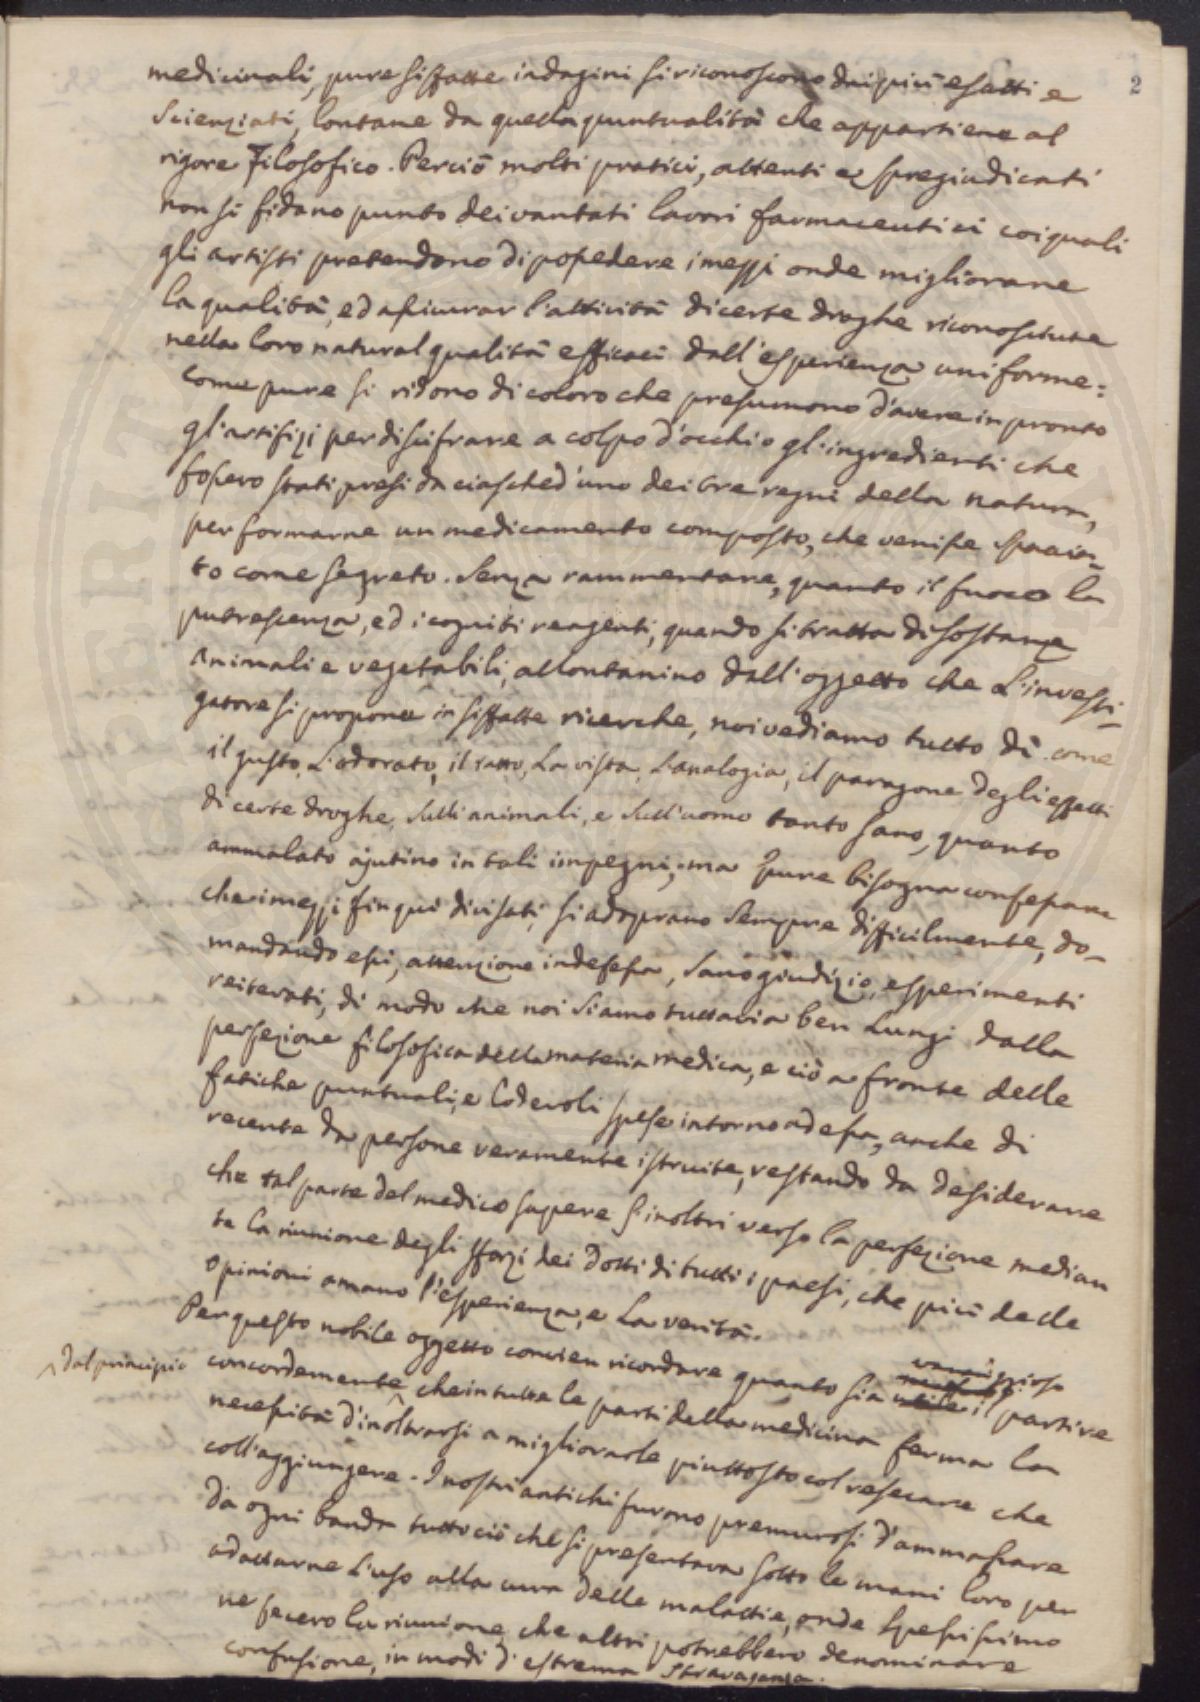 2
medicinali, pure siffatte indagini si riconoscono dai più esatti e
Scienziati, lontane da quella puntualità che appartiene al
rigore Filosofico. Perciò molti pratici, attenti e spregiudicati
non si fidano punto dei vantati lavori farmaceutici coi quali
gli artisti pretendono di possedere i mezzi onde migliorare
la qualità, ed assicurar l'attività di certe droghe riconosciute
nella loro natural qualità efficaci dall'esperienza uniforme:
come pure si ridono di coloro che presumono d'avere in pronto
gl'artifizj per discifrare a colpo d'occhio gl'ingredienti che
fossero stati presi da ciasched'uno dei tre regni della natura,
per formarne un medicamento composto, che venisse spaccia=
to come segreto. Senza rammentare, quanto il fuoco la
putrescenza, ed i cogniti reagenti, quando si tratta di sostanze
animali e vegetabili, allontanino dall'oggetto che L'investi=
gatore si propone in siffatte ricerche, noi vediamo tutto dì come
il gusto, L'odorato, il tatto, La vista, L'analogia, il paragone degli effetti
di certe droghe, sulli animali, e sull'uomo tanto sano, quanto
ammalato ajutino in tali impegni; ma pure bisogna confessare
che i mezzi fin qui divisati, si adoprano sempre difficilmente, do=
mandando essi, attenzione indefessa, sano giudizio, esperimenti
reiterati, di modo che noi siamo tuttavia ben Lungi dalla
perfezione filosofica della materia medica, e ciò a fronte delle
fatiche puntuali, e lodevoli spese intorno ad essa, anche di
recente da persone veramente istruite, restando da desiderare
che tal parte del medico sapere s'inoltri verso la perfezione median
te la riunione degli sforzi dei dotti di tutti i paesi, che più delle
opinioni amano l'esperienza, e La verità.
Per questo nobile oggetto convien ricordare quanto sia utile il partire
dal principio
concordemente che in tutte le parti della medicina ferma la
necessità d'inoltrarsi a migliorarle piuttosto col resecare che
coll'aggiungere. I nostri antichi furono premurosi d'ammassare
da ogni banda tutto ciò che si presentava sotto le mani loro per
adattarne L'uso alla cura delle malattie, onde spessissimo
ne fecero la riunione, che altri potrebbero denominare
confusione, in modi d'estrema stravaganza.